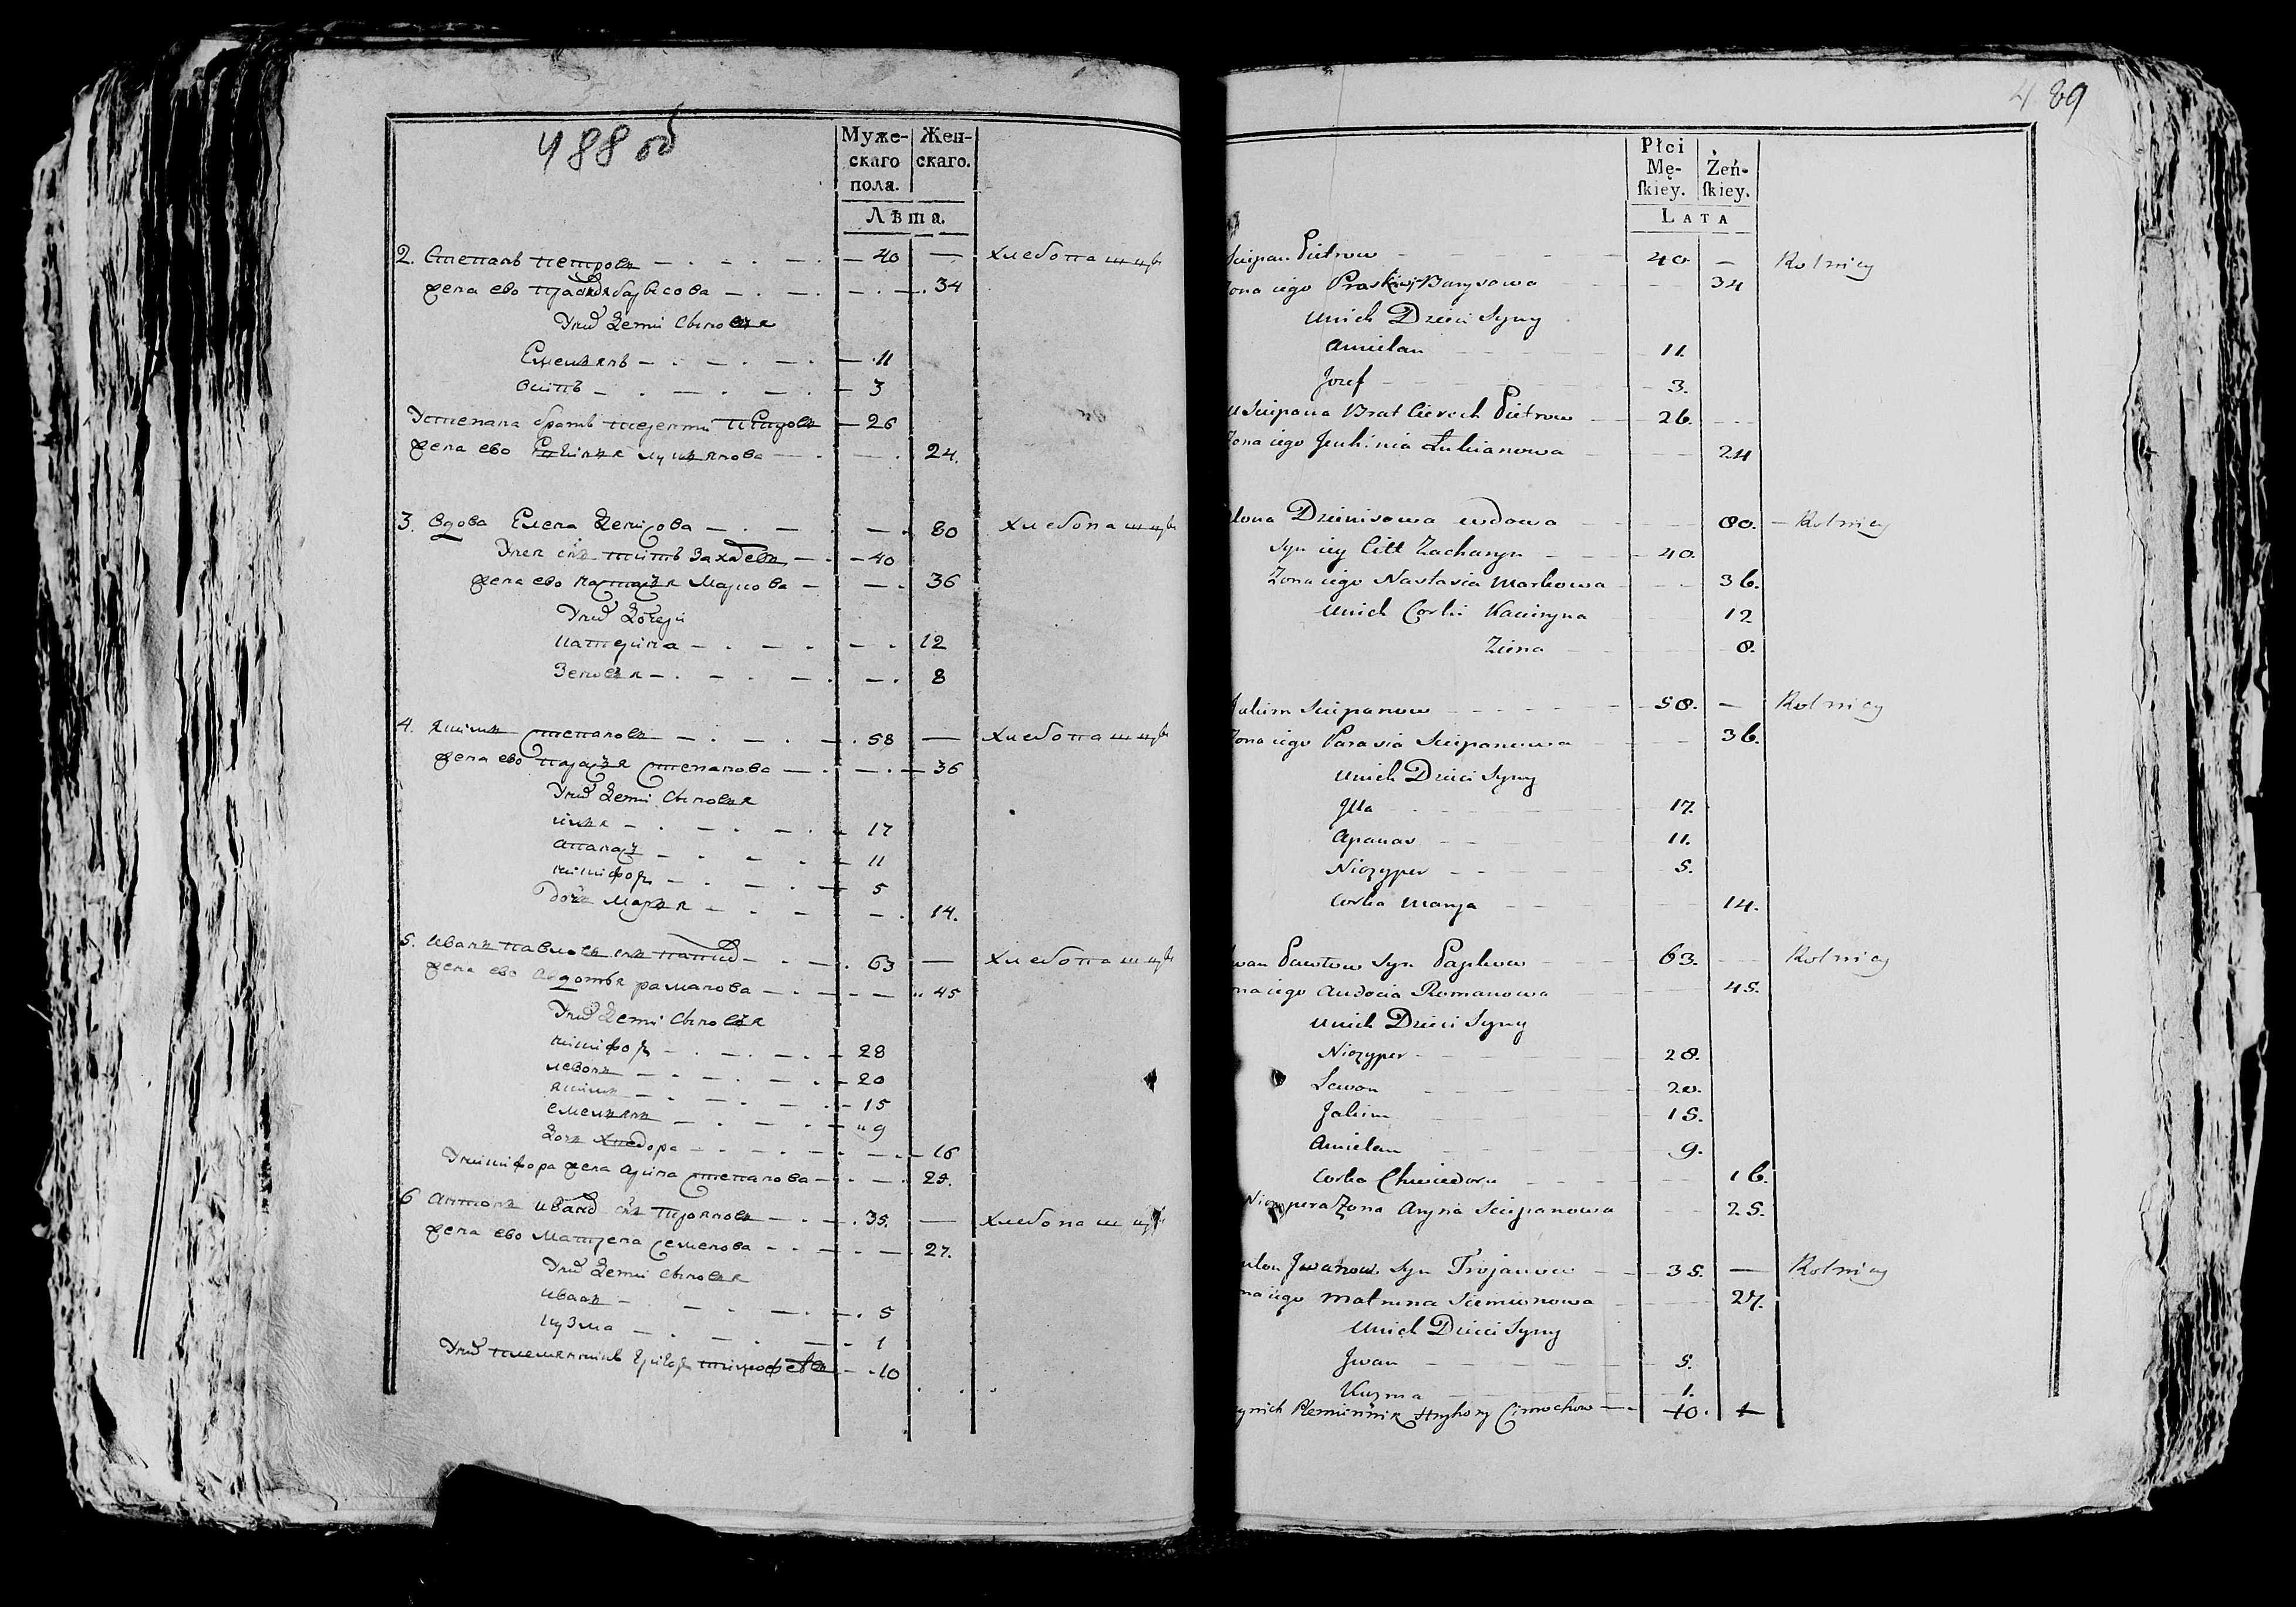 488 об
Муже-
скаго
пола.
Жен-
скаго.
Лѣта.
2. Степанъ петровъ 40 — хлебопашцы
жена ево прасковя барысова 34
У них дети сыновья
Емельянъ 11
Осипъ 3
У степана братъ терентий петровъ 26
жена ево лукьянова 24.
3. Вдова Елена денисова 80 хлебопашцы
У нея сынъ титъ захаревъ 40
жена ево настасья маркова 36
У них дочери
катерина 12
зеновья 8
4. якимъ степановъ 58 — хлебопашцы
жена ево парасья степанова 36
У них дети сыновья
илья 17
апанасъ 11
никифоръ 5
дочь марья 14.
5. иванъ павловъ сынъ 63 — хлебопашцы
жена ево авдотья раманова 45
У них дети сыновья
никифоръ 28
левонъ 20
якимъ 15
емельянъ 9
дочь хведора 16
У никифора жена арина степанова 25.
6 антонъ иванов сынъ трояновъ 35. — хлебопашцы
жена ево матрена семенова 27.
У них дети сыновья
иванъ 5
кузма 1
У них племянникъ григорей тимофеевъ 10
489
Płci
Mę-
skiey.
Żeń-
skiey.
LATA
Scipan Pietrow 40. — Rolnicy
Żona iego Praskwij Barysowa 34
U nich Dzieci Syny
Amielan 11.
Jozef 3.
U Scipana Brat Cierech Pietrow 26.
Żona iego Jeuhinia Łukianowa 24
Dzienisowa wdowa 80. — Rolnicy
Syn iey Citt Zacharyn 40.
Żona iego Nastasia Markowa 36.
U nich Corki Kaciryna 12
Ziena 8.
Jakim Scipanow 58. — Rolnicy
Żona iego Parasia Scipanowa 36.
U nich Dzieci Syny
Jlla 17.
Apanas 11.
Niczyper 5.
Corka Marya 14.
Jwan Pawłow Syn Papkow 63. Rolnicy
iego Audocia Romanowa 45.
U nich Dzieci Syny
Niczyper 28.
Lewon 20.
Jakim 15.
Amielan 9.
Corka Chwiedora 16.
Niczypera Żona Aryna Scipanowa 25.
Jwanow Syn Trojanow 35. — Rolnicy
iego Matruna Siemionowa 27.
U nich Dzieci Syny
Jwan 5.
Kuzma 1.
U nich Plemiennik Hryhory Cimochow 10. 1